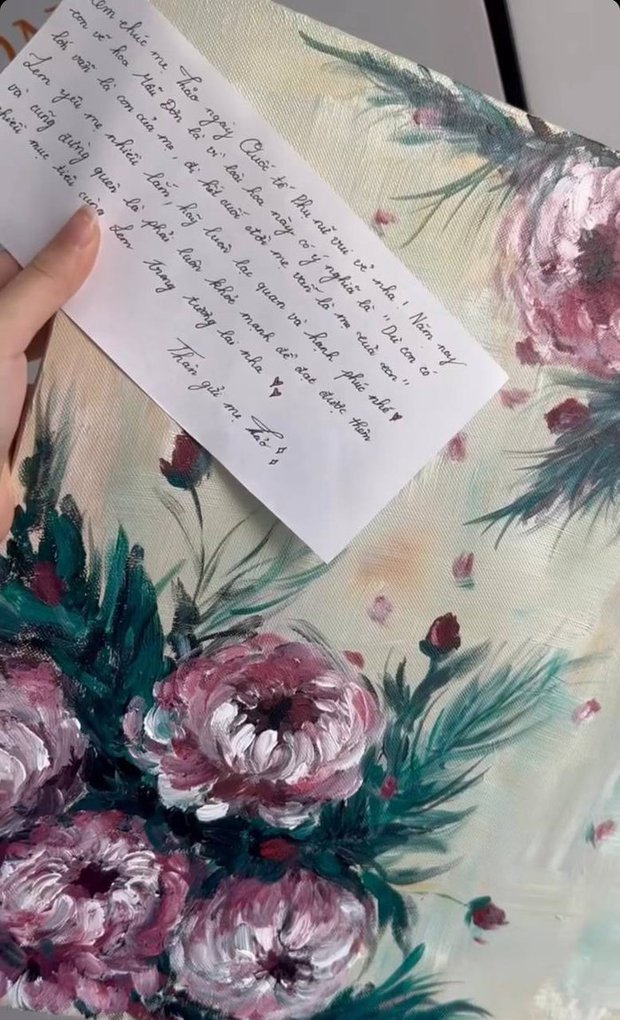 Lem chúc mẹ Thảo ngày Quốc tế Phụ nữ vui vẻ nha! Năm nay
con vẽ hoa Mẫu Đơn là vì loài hoa này có ý nghĩa là "Dù con có
lớn vẫn là con của mẹ, đi hết cuối đời mẹ vẫn là mẹ của con"
Lem yêu mẹ nhiều lắm, hãy luôn lạc quan và hạnh phúc nhé ♥
và cũng đừng quên là phải luôn khỏe mạnh để đạt được thêm
nhiều mục tiêu cùng Lem trong tương lai nha ♥♥
Thân gửi mẹ Thảo